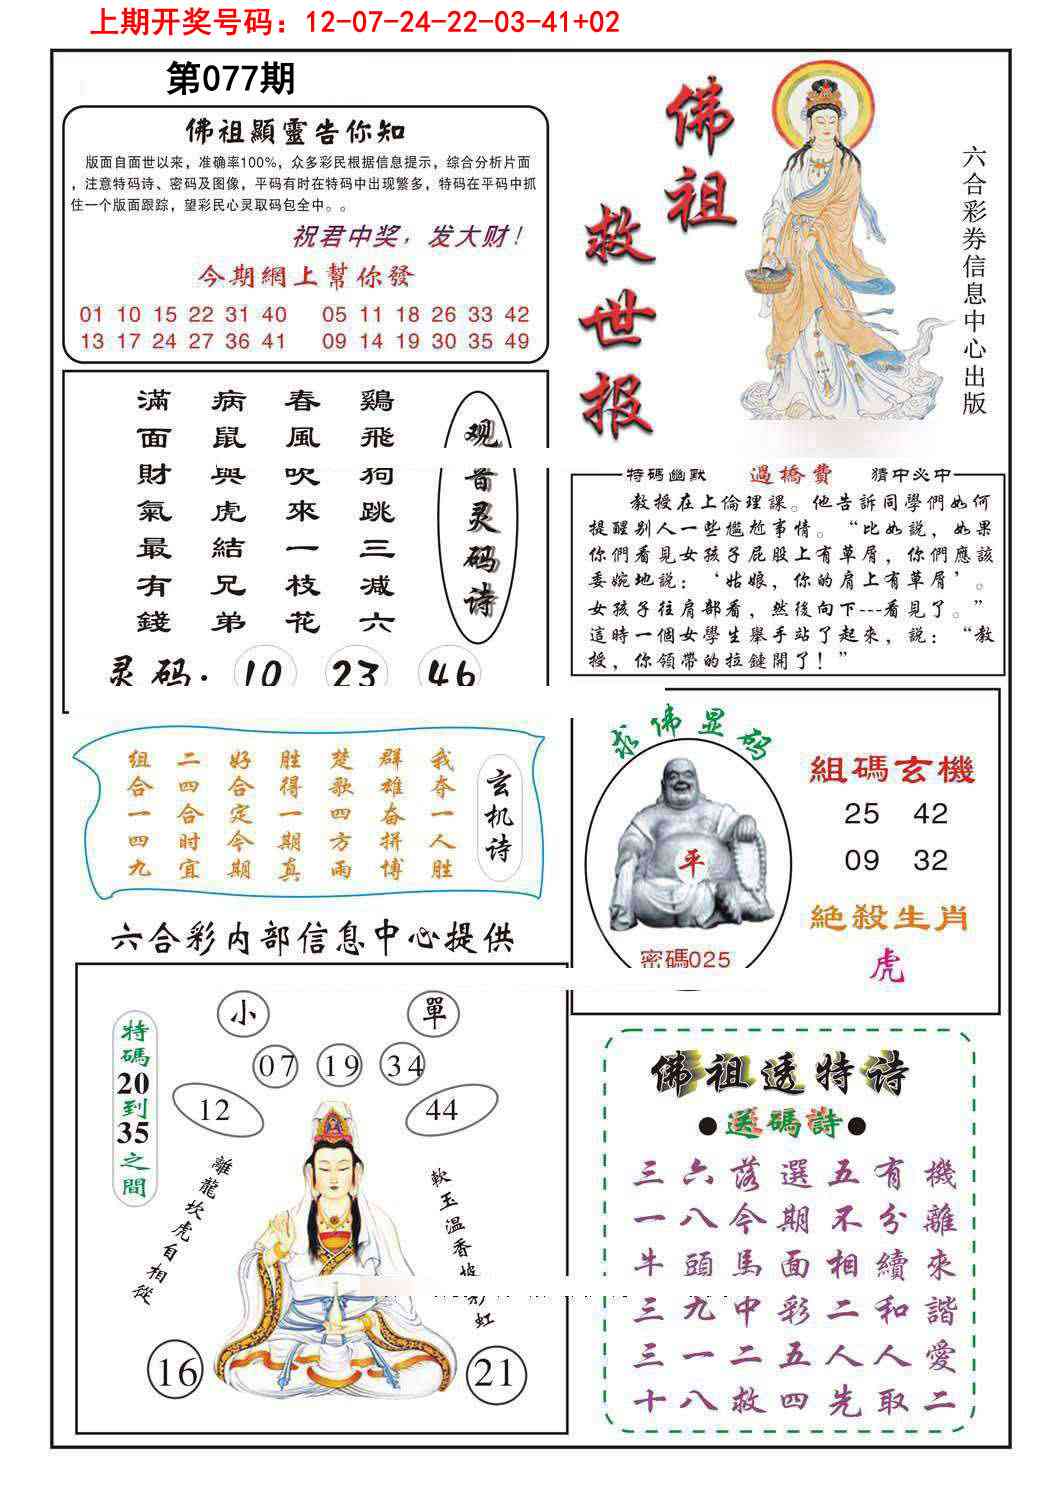 上期开奖号码：12-07-24-22-03-41+02
第077期
佛祖顯靈告你知
版面自面世以来，准确率100%，众多彩民根据信息提示，综合分析片面
，注意特码诗、密码及图像，平码有时在特码中出现繁多，特码在平码中抓
住一个版面跟踪，望彩民心灵取码包全中。。
祝君中奖，发大财！
今期網上幫你發
01 10 15 22 31 40 05 11 18 26 33 42
13 17 24 27 36 41 09 14 19 30 35 49
佛祖
救世报
六合彩券信息中心出版
观音灵码诗
鷄飛狗跳三减六
春風吹來一枝花
病鼠與虎結兄弟
滿面財氣最有錢
灵码: 10 23 46
特碼幽默 過橋費 猜中必中
教授在上倫理課。他告訴同學們如何
提醒别人一些尷尬事情。“比如説，如果
你們看見女孩子屁股上有草屑，你們應該
委婉地説：‘姑娘，你的肩上有草屑’。
女孩子往肩部看，然後向下---看見了。”
這時一個女學生舉手站了起來，説：“教
授，你領帶的拉鏈開了！”
玄机诗
我夺一人胜
群雄奋拼博
楚歌四方雨
胜得一期真
好合定今期
二四合时宜
组合一四九
求佛显码
平
密碼025
組碼玄機
25 42
09 32
絶殺生肖
虎
六合彩内部信息中心提供
小 單
07 19 34
12 44
特碼20到35之間
離龍坎虎自相從
軟玉温香披彩虹
16 21
佛祖透特诗
●送碼詩●
三六落選五有機
一八今期不分離
牛頭馬面相續來
三九中彩二和諧
三一二五人人愛
十八救四先取二